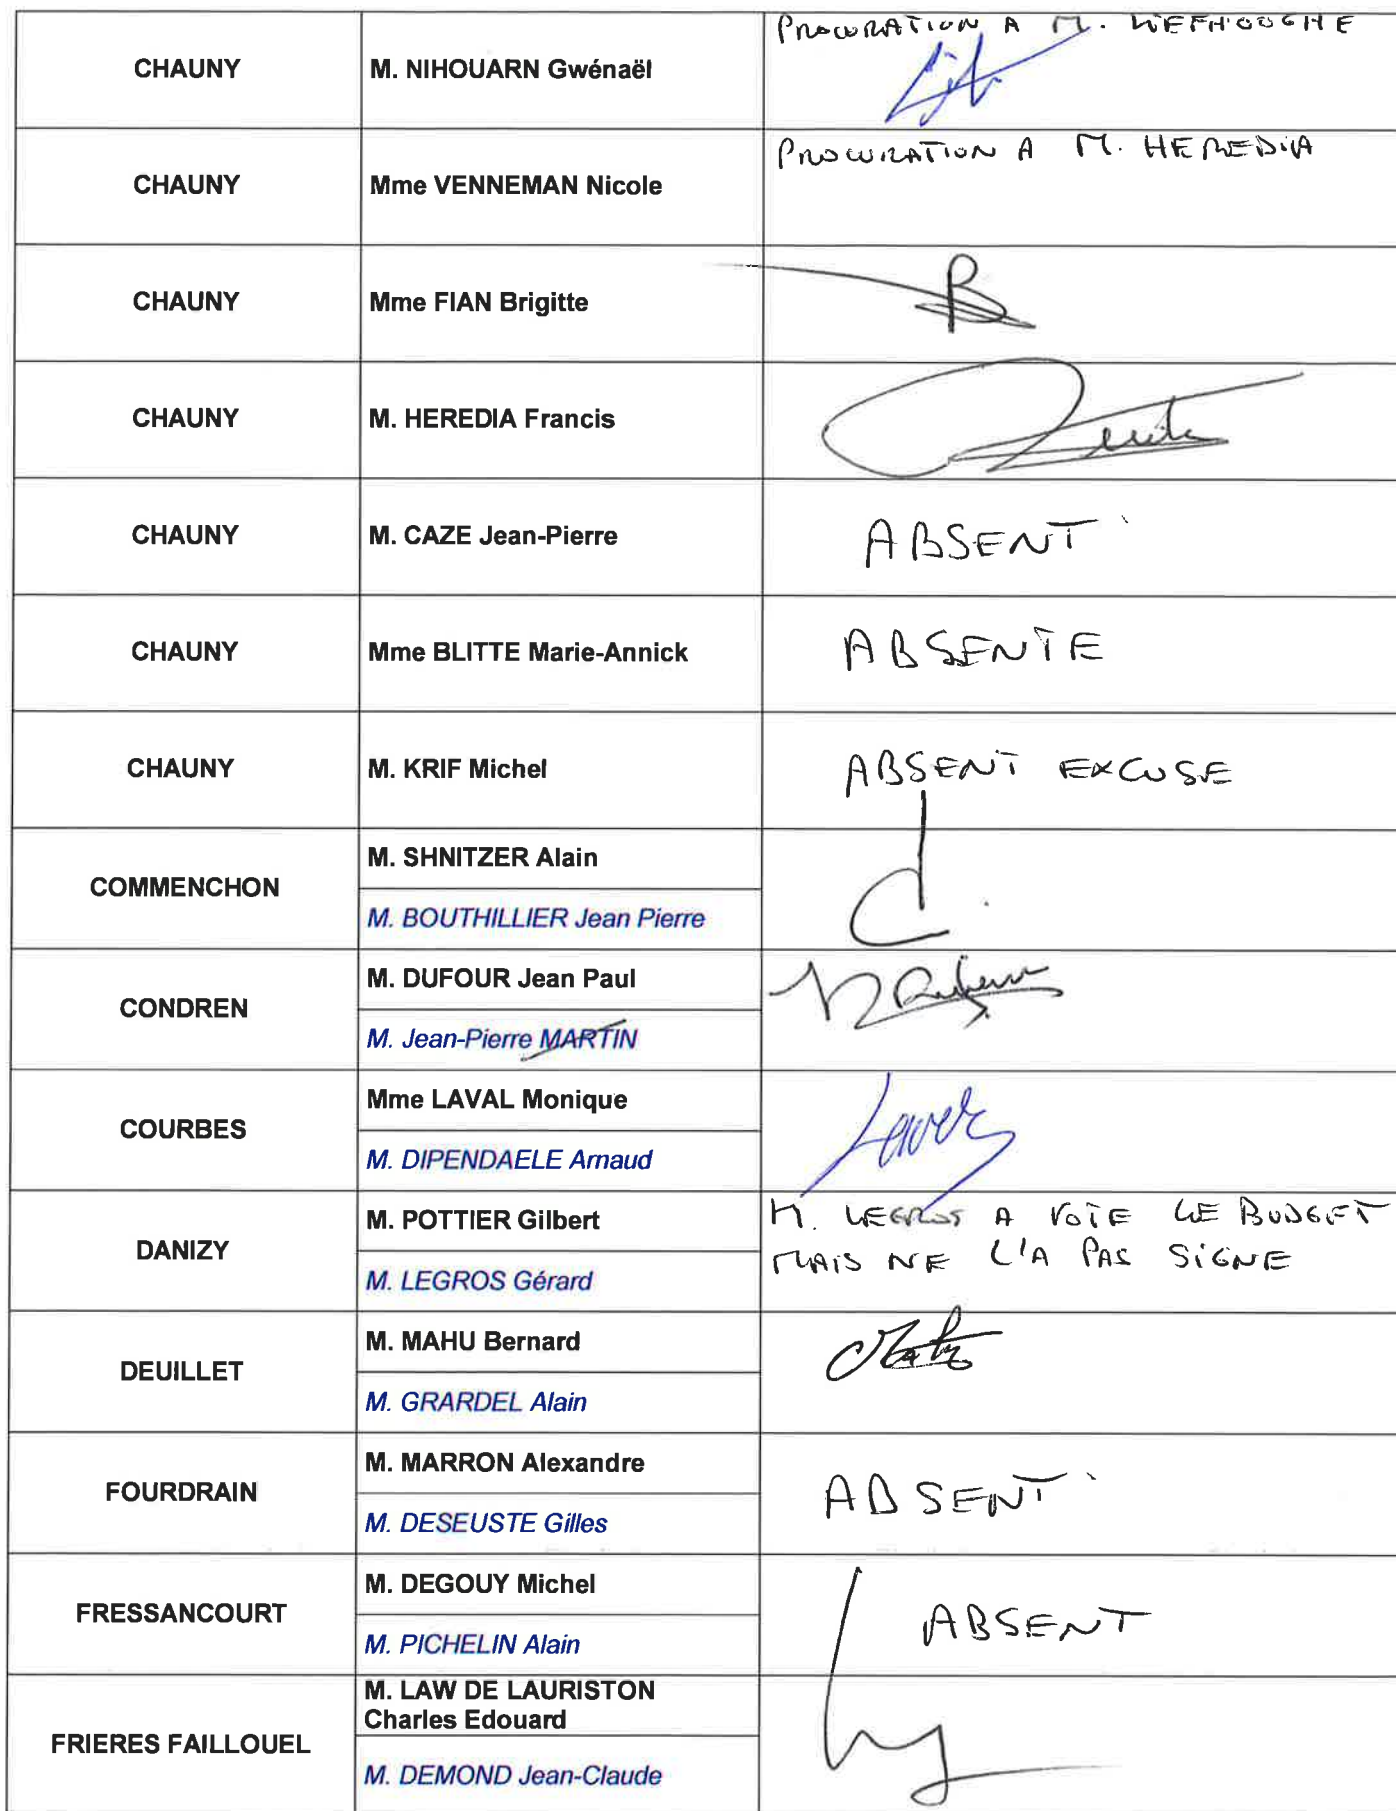 CHAUNY M. NIHOUARN Gwénaël PROCURATION A M.
CHAUNY Mme VENNEMAN Nicole PROCURATION A M. HEREDIA
CHAUNY Mme FIAN Brigitte
CHAUNY M. HEREDIA Francis
CHAUNY M. CAZE Jean-Pierre ABSENT
CHAUNY Mme BLITTE Marie-Annick ABSENTE
CHAUNY M. KRIF Michel ABSENT EXCUSE
COMMENCHON
M. SHNITZER Alain
M. BOUTHILLIER Jean Pierre
CONDREN
M. DUFOUR Jean Paul
M. Jean-Pierre MARTIN
COURBES
Mme LAVAL Monique
M. DIPENDAELE Arnaud
DANIZY
M. POTTIER Gilbert
M. LEGROS Gérard
M. LEGROS A VOTE LE BUDGET
MAIS NE L'A PAS SIGNE
DEUILLET
M. MAHU Bernard
M. GRARDEL Alain
FOURDRAIN
M. MARRON Alexandre
M. DESEUSTE Gilles
ABSENT
FRESSANCOURT
M. DEGOUY Michel
M. PICHELIN Alain
ABSENT
FRIERES FAILLOUEL
M. LAW DE LAURISTON
Charles Edouard
M. DEMOND Jean-Claude